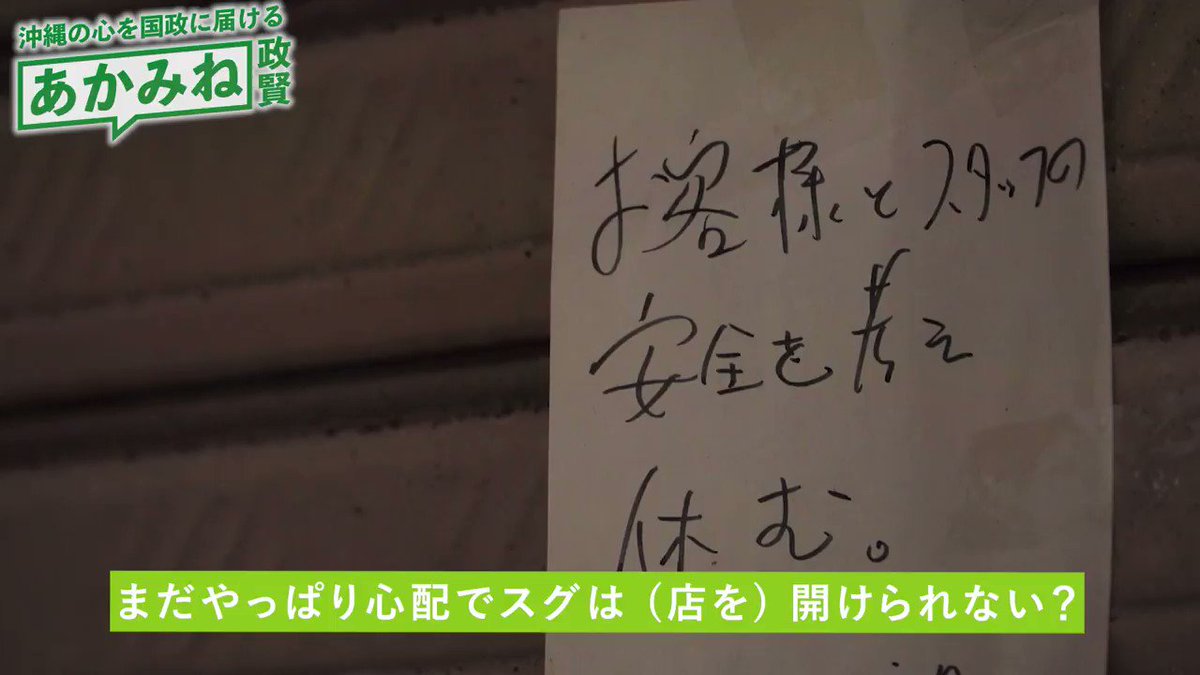 沖縄の心を国政に届ける
あかみね
政賢
お客様とスタッフの
安全を考え
休む。
まだやっぱり心配でスグは（店を）開けられない？